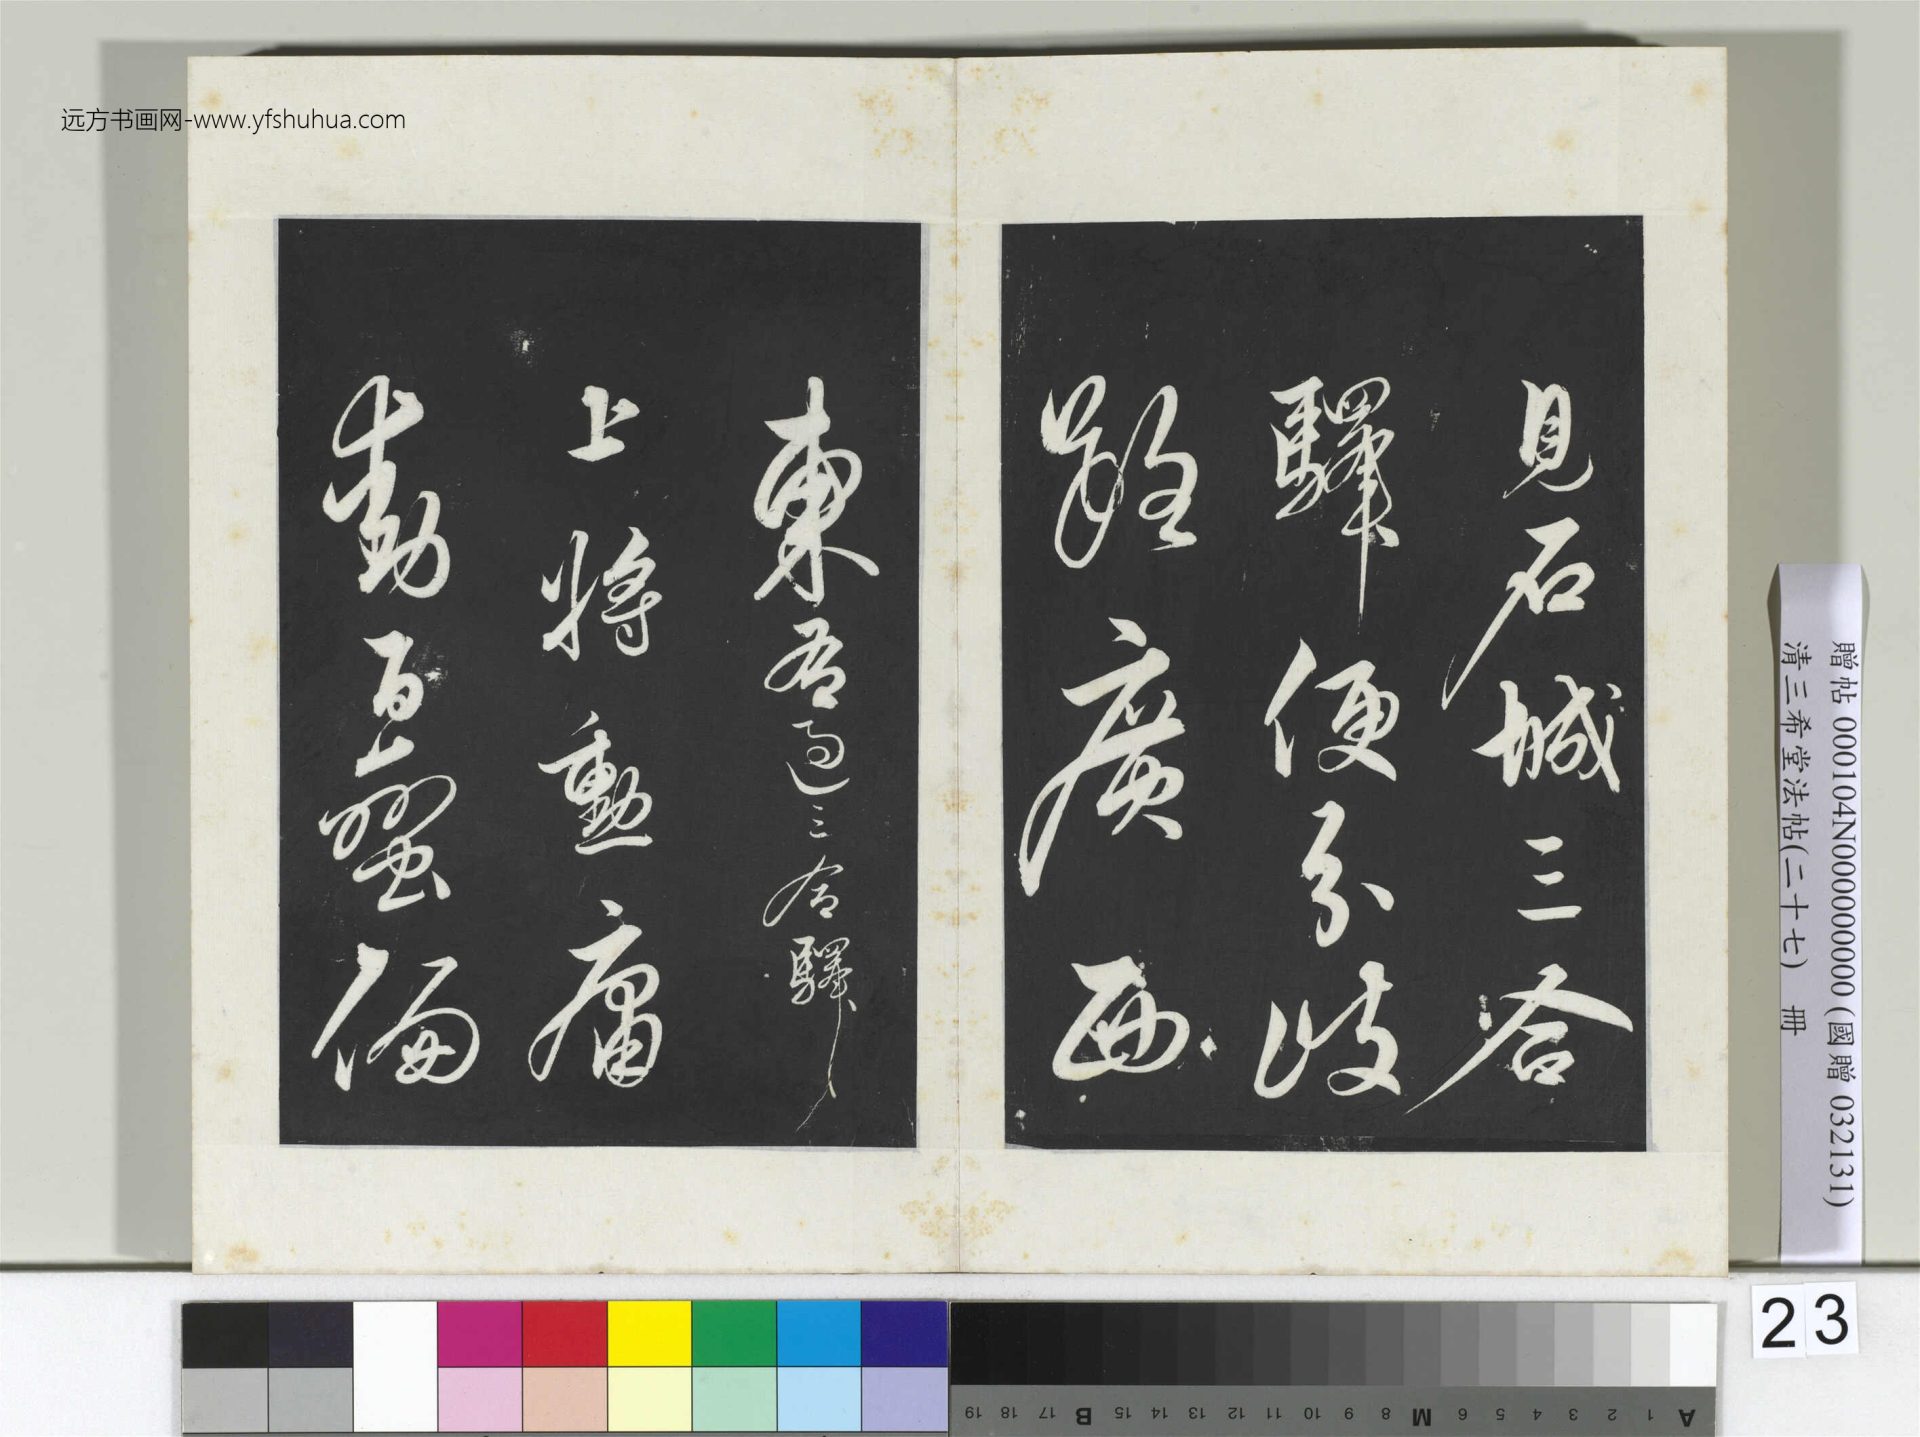 見石城三合
驛便分岐
路廣西
東 右過三合驛
上將勳庸
動百蠻偏
远方书画网-www.yfshuhua.com
贈帖 000104N000000000 (國贈 032131)
清三希堂法帖(二十七) 冊
23
A 1 2 3 4 5 6 M 8 9 10 11 12 13 14 15 B 17 18 19